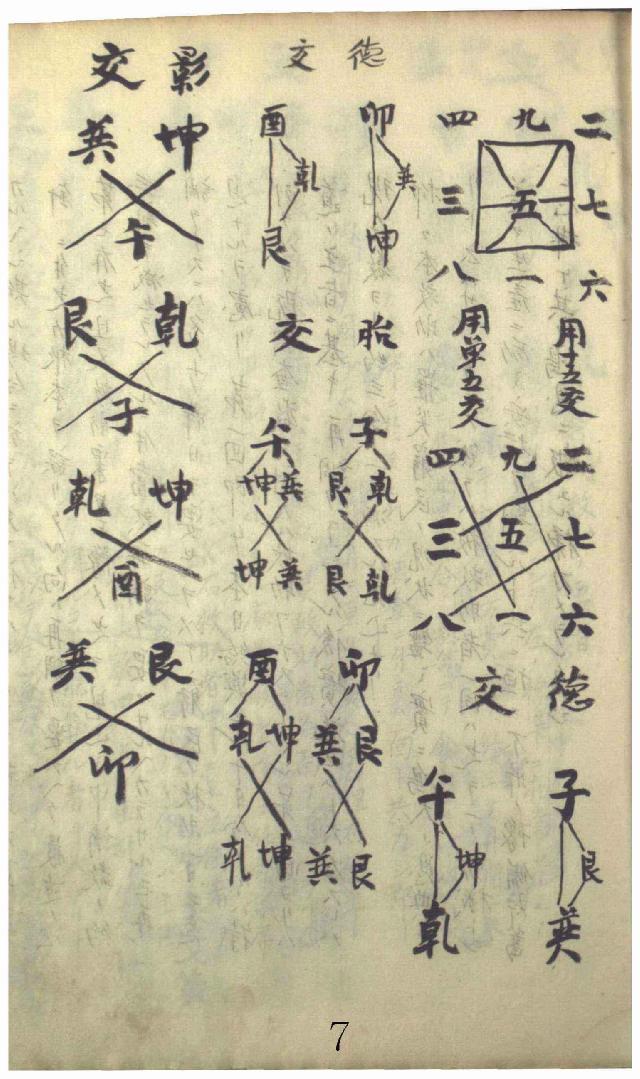 二 九 四
七 五 三
六 一 八
用十五交
用单五交
二 九 四
七 五 三
六 一 八
德交
子 艮 巽
午 坤 乾
德交
卯 巽 坤
酉 乾 艮
胎交
子
乾 艮
乾 艮
午
巽 坤
巽 坤
卯
艮 巽
艮 巽
酉
坤 乾
坤 乾
影交
坤 巽
午
乾 艮
子
坤 乾
酉
艮 巽
卯
7